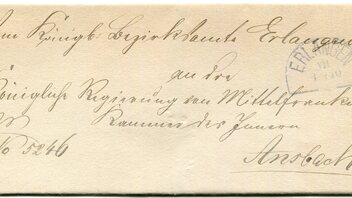 Königl. Bezirksamte Erlangen
ERLANGEN
VII
an die
Königliche Regierung von Mittelfranken
Kammer des Innern
No 5246
Ansbach